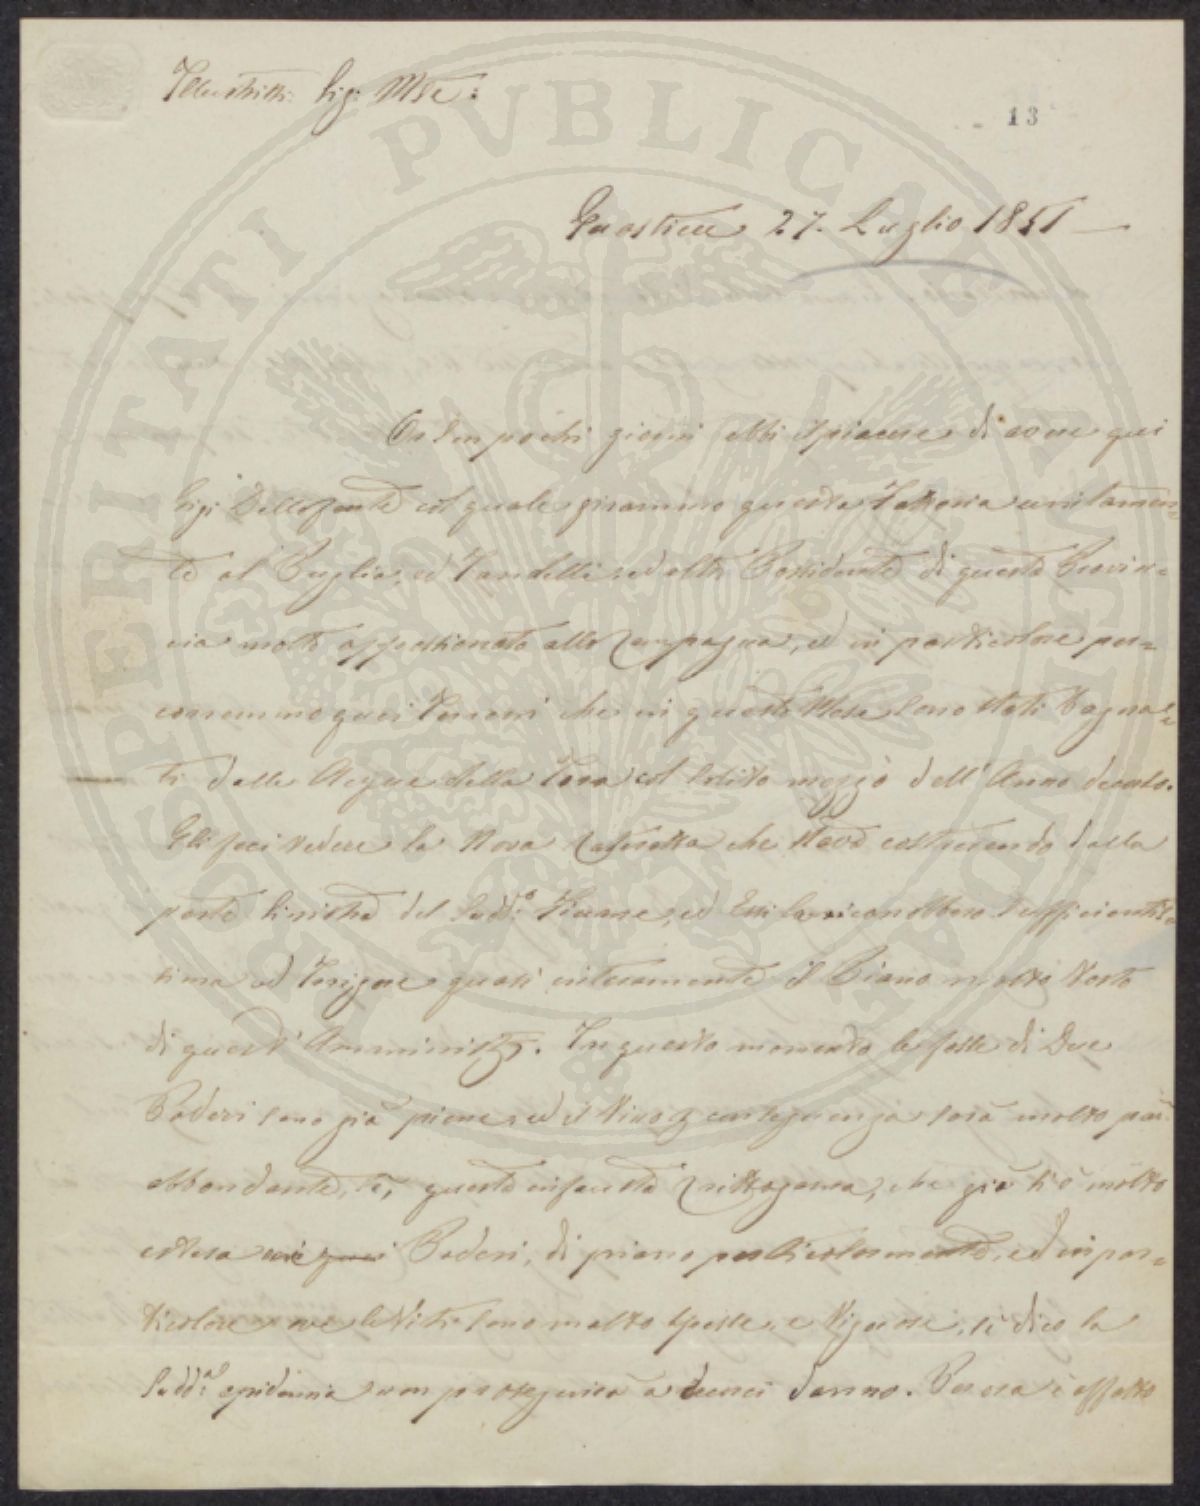 Illustriss: Sig: Mse:
13
Guasticce 27. Luglio 1851
Or son pochi giorni ebbi il piacere di avere qui
Gigi Dellosante col quale girammo questa Fattoria unitamen=
te al Puglia, ed Vandelli ed altro Possidente di questa Provin=
cia molto appassionato alla Campagna, ed in particolare per=
corremmo quei Terreni che in questo Mese sono stati bagna=
ti dalle Acque della Tora col solito mezzo dell'Anno decorso.
Gli feci vedere la Nova Cateratta che stavo costruendo dalla
parte sinistra del Sudd:o Fiume, ed Essi la riconobbero sufficientis=
sima ad Irrigare quasi interamente il Piano molto Vasto
di quest'Amministr. In questo momento le fosse di Due
Poderi sono già piene, ed il Vino conseguenza sarà molto
abbondante, se, questa infausta Crittogama, che già si è molto
estesa Poderi, di piano particolarmente, ed in par=
ticolare ove le Viti sono molto spesse, e Vigorose, se dico la
Sudd:a epidemia non proseguirà a darci danno. Per ora è affatto
PERITATI PVBLICAE